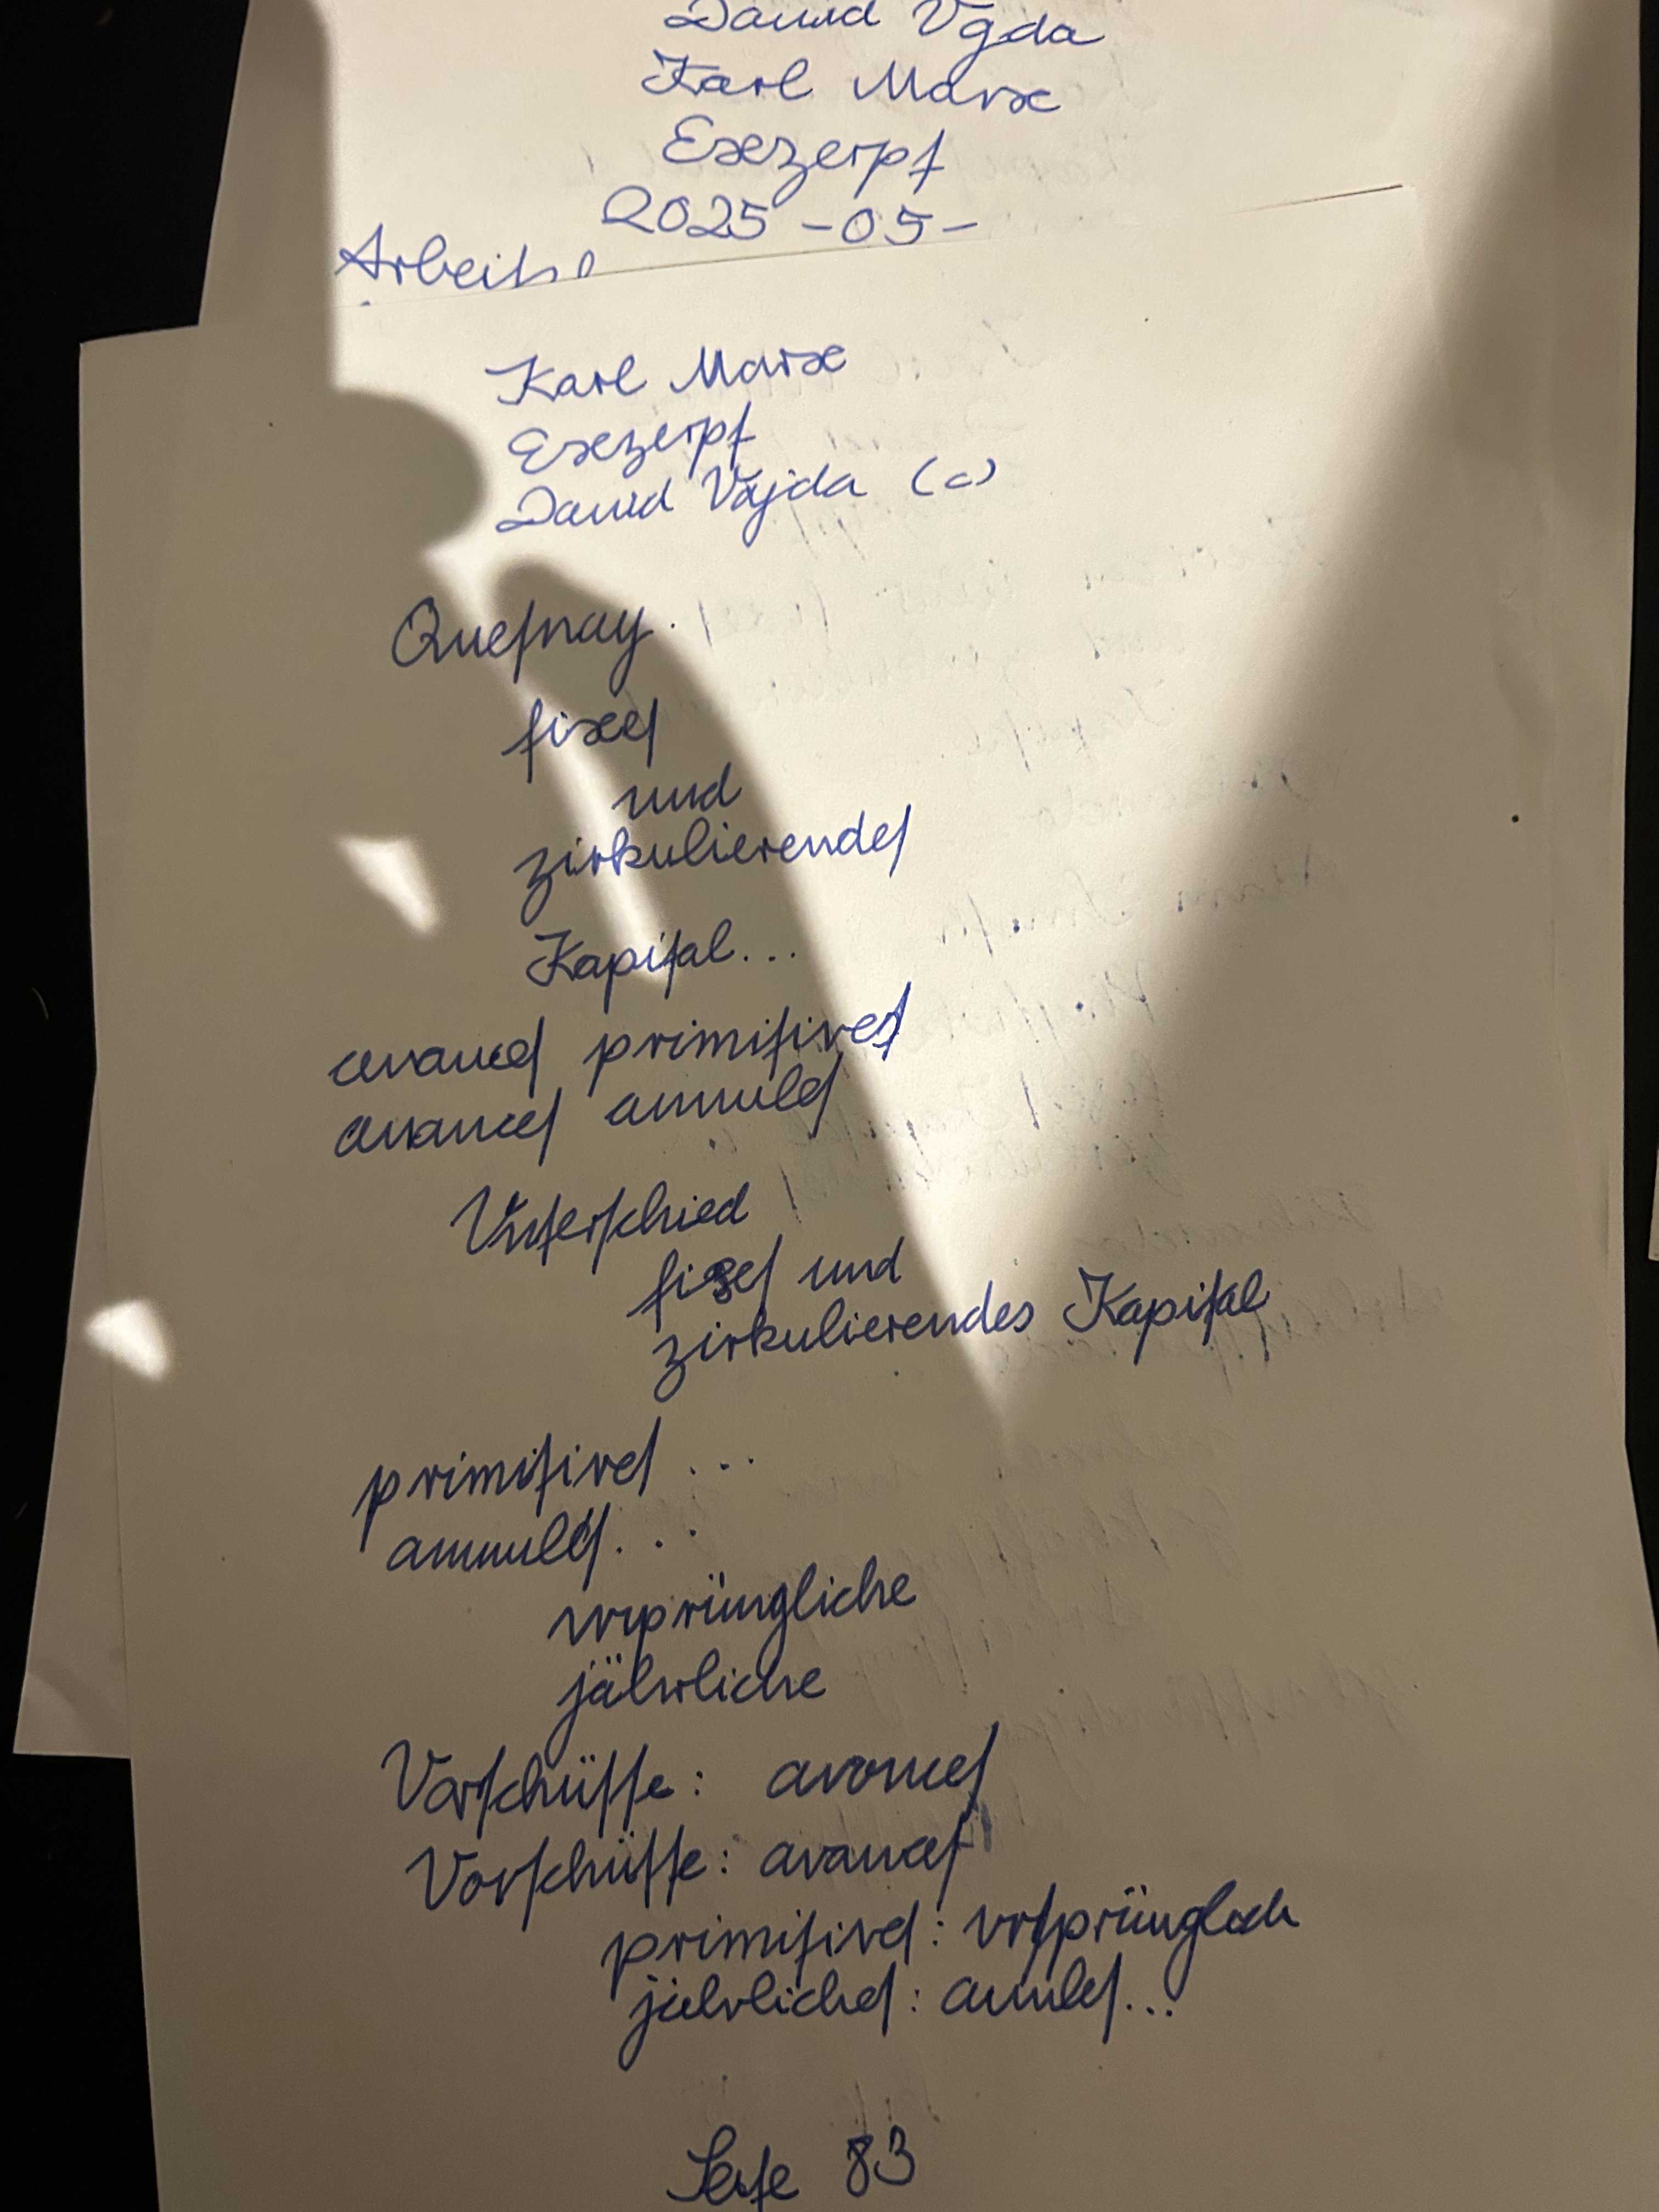 David Vajda
Karl Marx
Exzerpt
2025-05-
Karl Marx
Exzerpt
David Vajda (c)
Quesnay.
fixes
und
zirkulierendes
Kapital...
avances primitives
avances annules
Unterschied
fixes und
zirkulierendes Kapital
primitives...
annules...
ursprüngliche
jährliche
Vorschüsse: avances
Vorschüsse: avances
primitives: ursprünglich
jährliches: annules...
Seite 83